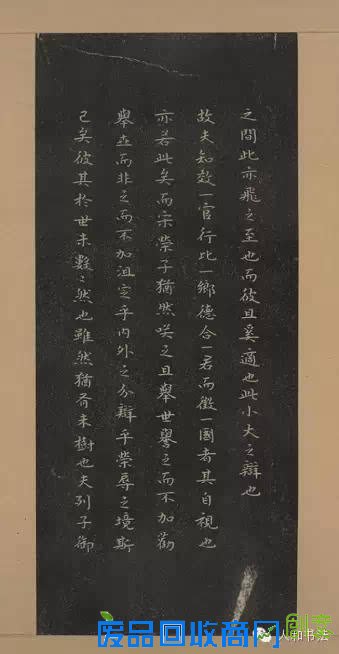 之間此亦飛之至也而彼且奚適也此小大之辯也
故夫知效一官行比一鄉德合一君而徵一國者其自視也
亦若此矣而宋榮子猶然笑之且舉世譽之而不加勸
舉世而非之而不加沮定乎內外之分辯乎榮辱之境斯
已矣彼其於世未數之然也雖然猶有未樹也夫列子御
废品回收商网
人和书法